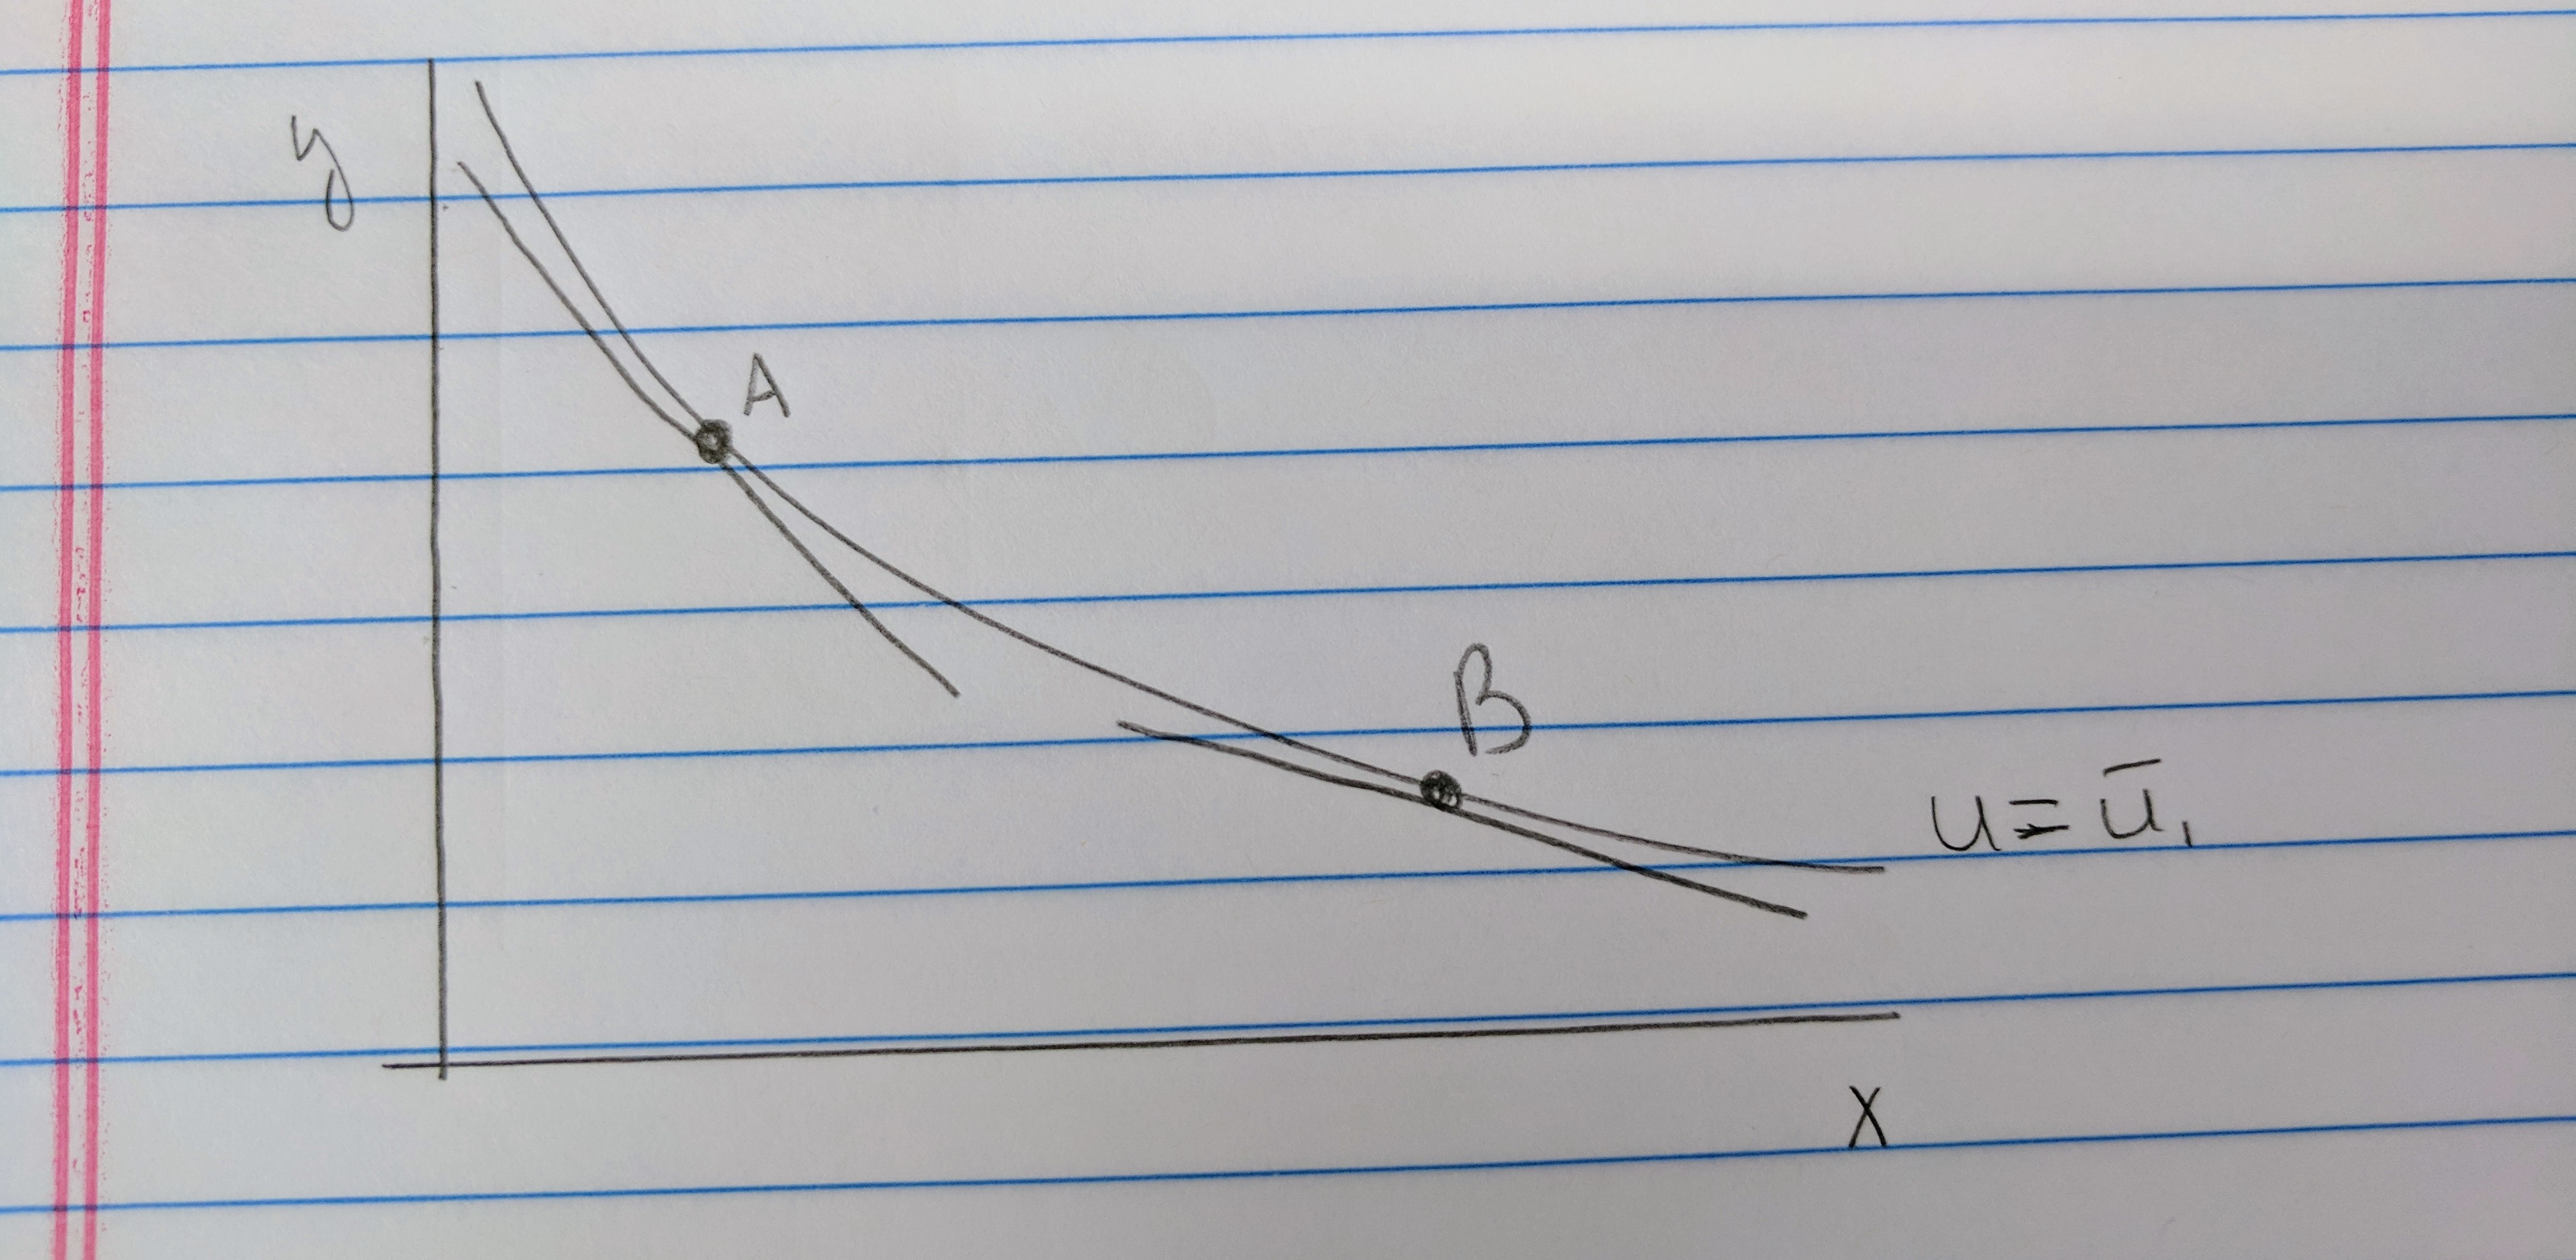 y
A
B
u = ū₁
X